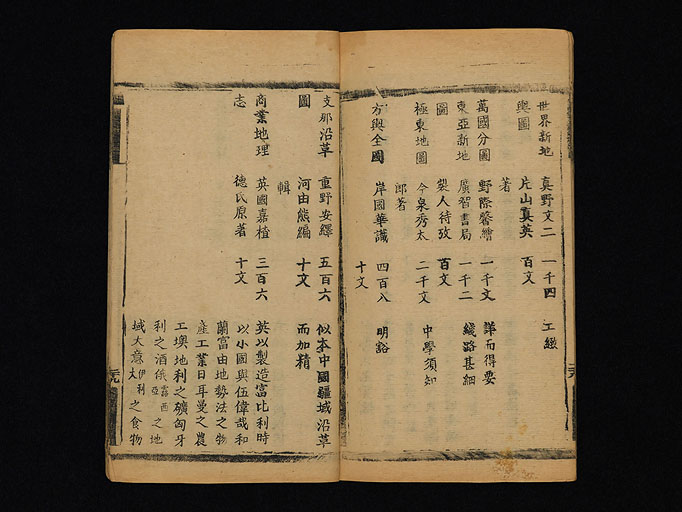 世界新地　真野文二　一千四　工緻
輿圖　片山眞英　百文
著
萬國分圖　野際馨繪　一千文　詳而得要
東亞新地　廣智書局　一千二　綫路甚細
圖　製人待攷　百文
極東地圖　今泉秀太　二千文　中學須知
郎著
方輿全國　岸國華識　四百八　明豁
十文
支那沿革　重野安繹　五百六　似本中國疆域沿革
圖　河由熊編　十文　而加精
輯
商業地理　英國嘉楂　三百六　英以製造富比利時
志　德氏原著　十文　以小國與伍偉哉和
蘭富由地勢法之物
產工業日耳曼之農
工墺地利之礦匈牙
利之酒俄羅西亞之地
域大意大伊利之食物